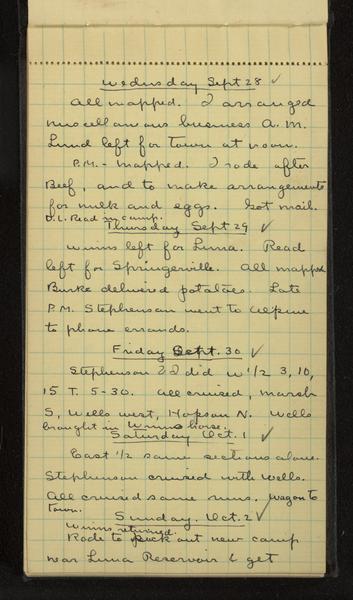 Wednesday Sept 28 ✓
All mapped. I arranged
miscellanous business A.M.
Lund left for town at noon.
P.M. - Mapped. I rode after
Beef, and to make arrangements
for milk and eggs. Got mail.
D.L. Read in camp.
Thursday Sept 29 ✓
Winns left for Luna. Read
left for Springerville. All mapped
Burke delivered potatoes. Late
P.M. Stephenson went to Alpine
to phone errands.
Friday Sept. 30 ✓
Stephenson & I did W 1/2 3, 10,
15 T. 5-30. All cruised, Marsh
S, Wells west, Hopson N. Wells
brought in Winns horse.
Saturday Oct. 1 ✓
East 1/2 same sections alone.
Stephenson cruised with Wells.
All cruised same runs. Wagon to
town.
Sunday. Oct. 2 ✓
Winns returned.
Rode to pick out new camp
near Luna Reservoir & get